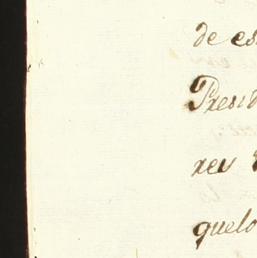 de es
Presid
rey
quelo